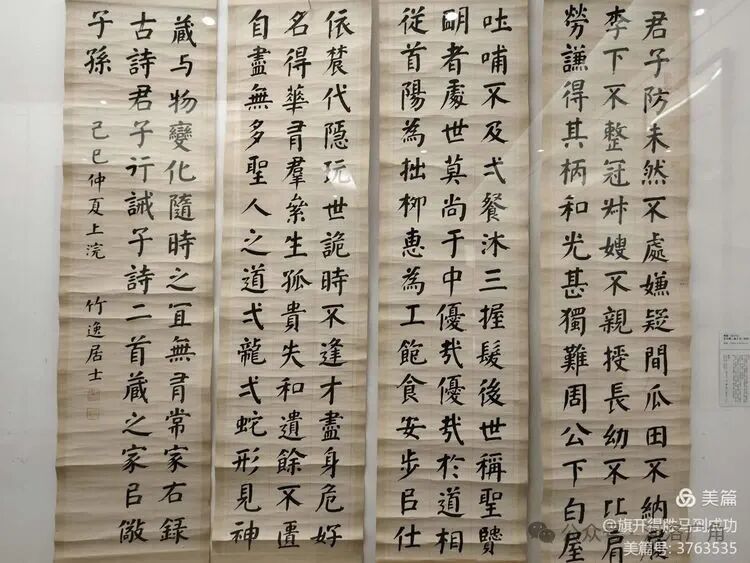 君子防未然不處嫌疑間瓜田不納履
李下不整冠叔嫂不親授長幼不比肩
勞謙得其柄和光甚獨難周公下白屋
吐哺不及弌餐沐三握髮後世稱聖賢
朙者處世莫尚于中優哉優哉於道相
從首陽為拙柳惠為工飽食安步㠯仕
依農代隱玩世詭時不逢才盡身危好
名得華有羣累生孤貴失和遺餘不匱
自盡無多聖人之道弌龍弌蛇形見神
藏与物變化隨時之宜無有常家右錄
古詩君子行誡子詩二首藏之家㠯儆
子孫 己巳仲夏上浣 竹逸居士
美篇
@旗开得胜马到成功
美篇号: 3763535